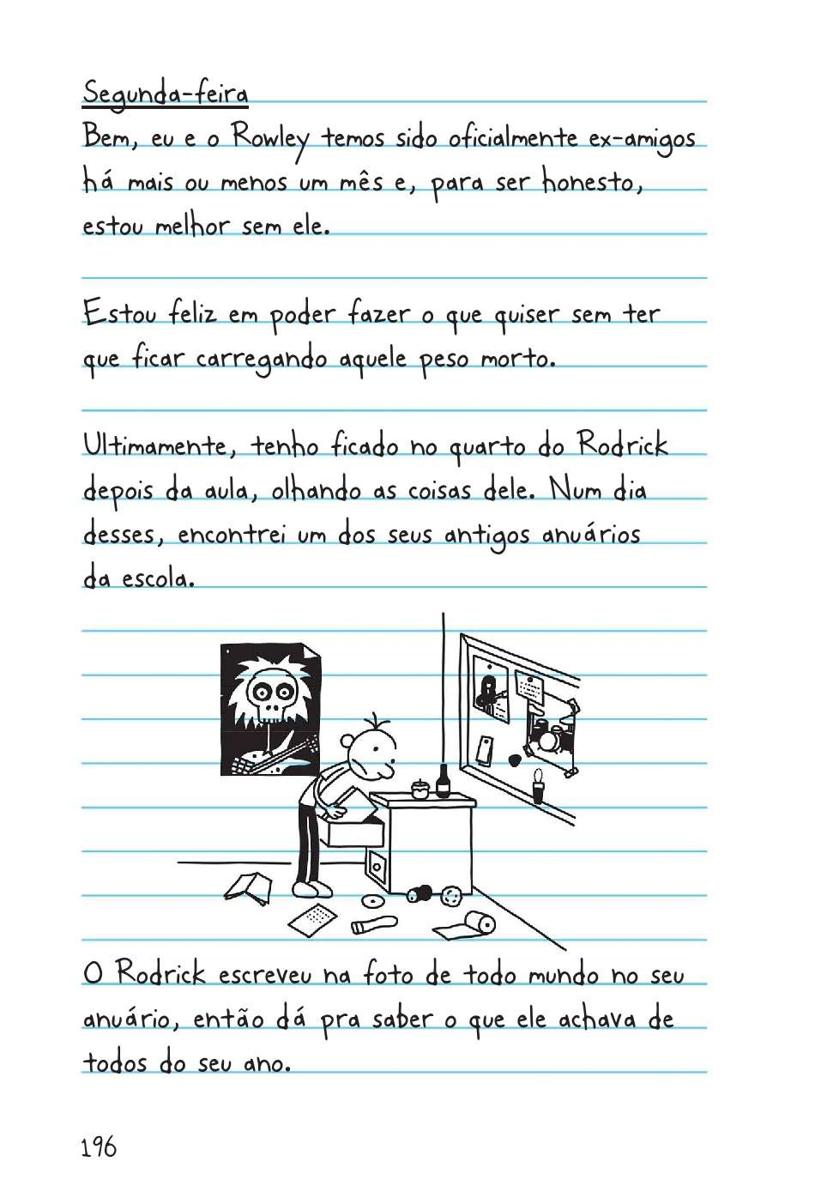 Segunda-feira
Bem, eu e o Rowley temos sido oficialmente ex-amigos
há mais ou menos um mês e, para ser honesto,
estou melhor sem ele.
Estou feliz em poder fazer o que quiser sem ter
que ficar carregando aquele peso morto.
Ultimamente, tenho ficado no quarto do Rodrick
depois da aula, olhando as coisas dele. Num dia
desses, encontrei um dos seus antigos anuários
da escola.
O Rodrick escreveu na foto de todo mundo no seu
anuário, então dá pra saber o que ele achava de
todos do seu ano.
196